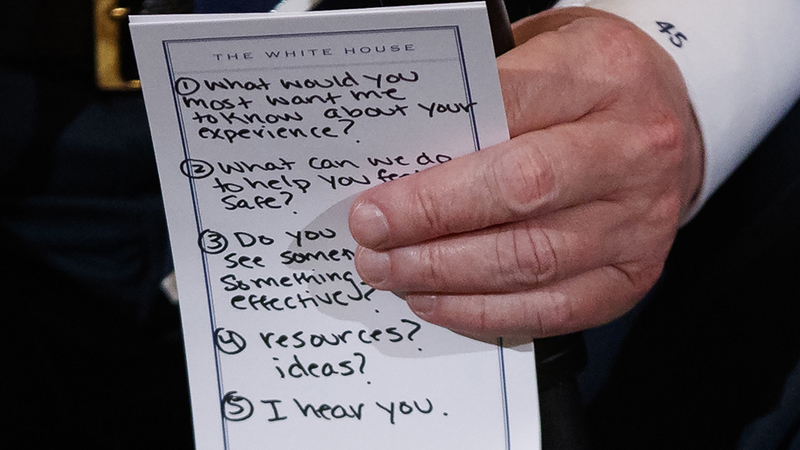 45
THE WHITE HOUSE
① What would you
most want me
to know about your
experience?
② What can we do
to help you
safe?
③ Do you
see
Something
effective?
④ resources?
ideas?
⑤ I hear you.